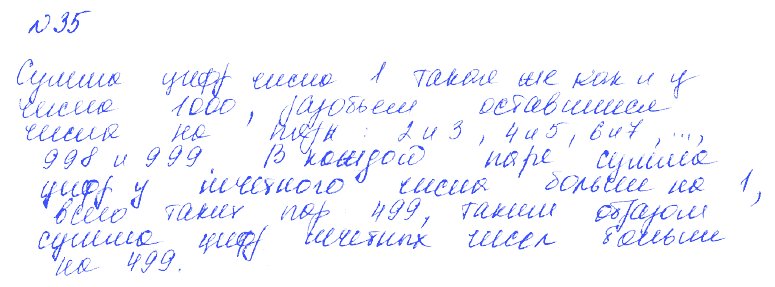 №35
Сумма цифр числа 1 такая же как и у
числа 1000, разобьем оставшиеся
числа на пары: 2 и 3, 4 и 5, 6 и 7, ...,
998 и 999. В каждой паре сумма
цифр у нечетного числа больше на 1,
всего таких пар 499, таким образом
сумма цифр нечетных чисел больше
на 499.